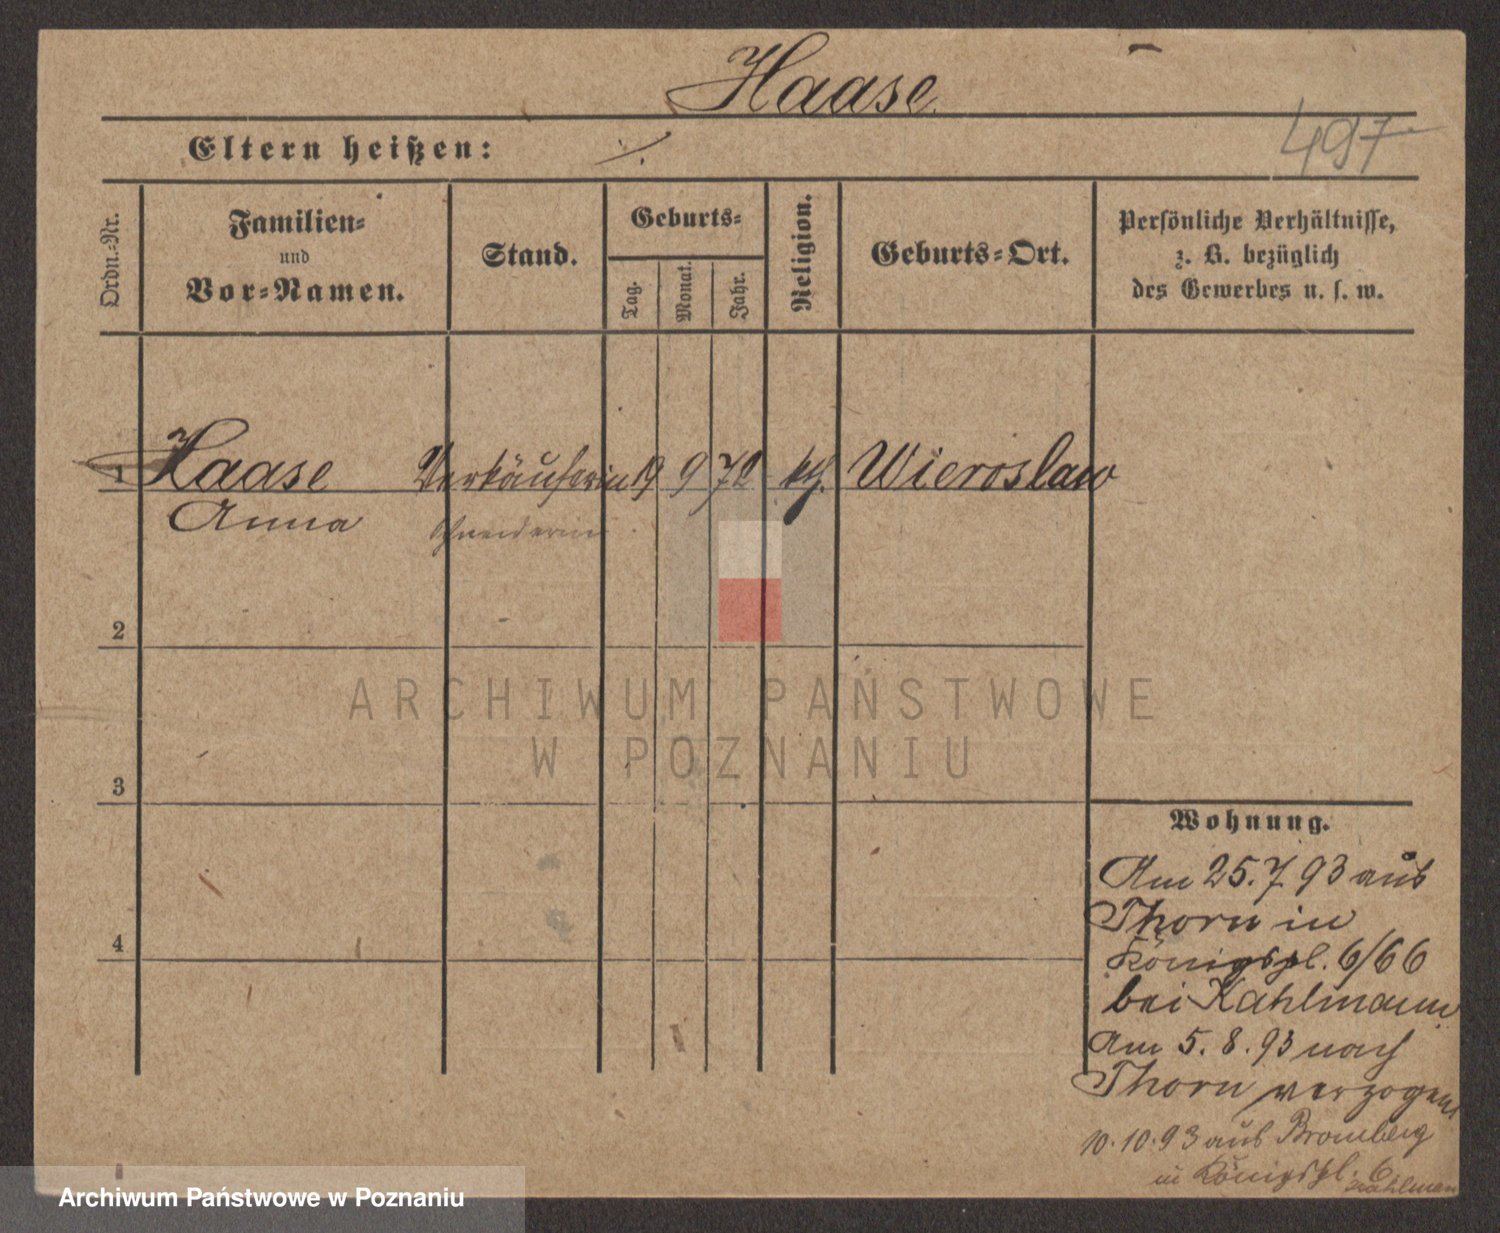 Haase
497
Eltern heißen: ./.
Ordn.-Nr.
Familien-
und
Vor-Namen.
Stand.
Geburts-
Tag.
Monat.
Jahr.
Religion.
Geburts-Ort.
Persönliche Verhältnisse,
z. B. bezüglich
des Gewerbes u. s. w.
1 Haase Verkäuferin 19 9 72 kth. Wieroslaw
Anna Schneiderin
2
ARCHIWUM PAŃSTWOWE
W POZNANIU
3
Wohnung.
Am 25.7.93 aus
Thorn in
Königspl. 6/66
bei Kahlmann
Am 5.8.93 nach
Thorn verzogen
10.10.93 aus Bromberg
in Königspl. 6
Kahlman
4
Archiwum Państwowe w Poznaniu